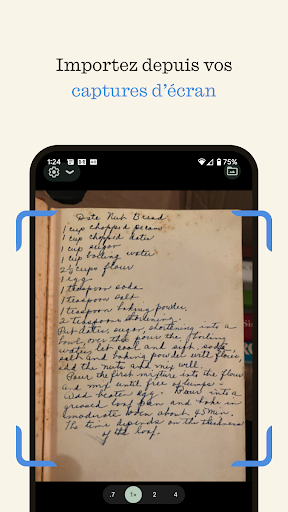 Importez depuis vos
captures d'écran
1:24
75%
Date Nut Bread
1 cup chopped pecans
1 cup chopped dates
1 cup sugar
1 cup boiling water
2½ cups flour
1 egg
1 teaspoon soda
1 teaspoon salt
1 teaspoon baking powder
2 teaspoons shortening.
Put dates, sugar, shortening into a
bowl, over this pour the boiling
water, let cool and sift soda,
salt and baking powder with flour,
add the nuts and mix well.
Pour the first mixture into the flour
and mix until free of lumps-
Add beaten egg. Pour into a
greased loaf pan and bake in
moderate oven about 45 min.
The time depends on the thickness
of the loaf.
.7 1× 2 4